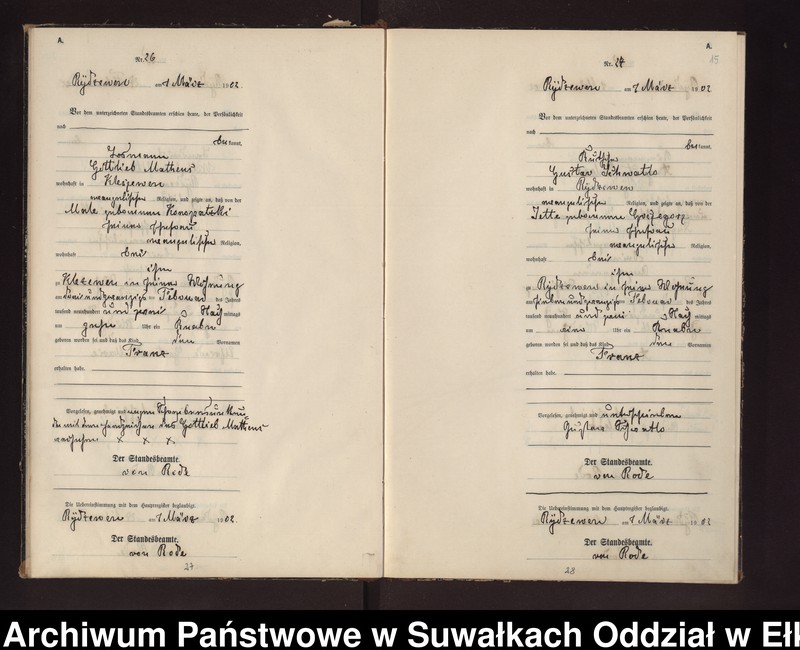 A.
Nr. 26
Rÿdzewen am 1 März 1902.
Vor dem unterzeichneten Standesbeamten erschien heute, der Persönlichkeit
nach
bekannt,
Losmann
Gottlieb Matheus
wohnhaft in Klezewen
evangelischer Religion, und zeigte an, daß von der
Male geborenen Konopatzki
seiner Ehefrau
evangelischer Religion,
wohnhaft bei
ihm
zu Klezewen in seiner Wohnung
am drei und zwanzigsten Februar des Jahres
tausend neunhundert und zwei Nachmittags
um zehn Uhr ein Knabe
geboren worden sei und daß das Kind den Vornamen
Franz
erhalten habe.
Vorgelesen, genehmigt und wegen Schreibensunkun
de mit dem Handzeichen des Gottlieb Matheus
versehen x x x
Der Standesbeamte.
von Rode
Die Uebereinstimmung mit dem Hauptregister beglaubigt.
Rÿdzewen am 1 März 1902
Der Standesbeamte.
von Rode
27
A.
15
Nr. 27
Rÿdzewen am 1 März 1902
Vor dem unterzeichneten Standesbeamten erschien heute, der Persönlichkeit
nach
bekannt,
Kutscher
Gustav Schwatlo
wohnhaft in Rÿdzewen
evangelischer Religion, und zeigte an, daß von der
Jette geborenen
seiner Ehefrau
evangelischer Religion,
wohnhaft bei
ihm
zu Rÿdzewen in seiner Wohnung
am sieben und zwanzigsten Februar des Jahres
tausend neunhundert und zwei Nachmittags
um eins Uhr ein Knabe
geboren worden sei und daß das Kind den Vornamen
Franz
erhalten habe.
Vorgelesen, genehmigt und unterschrieben
Gustav Schwatlo
Der Standesbeamte.
von Rode
Die Uebereinstimmung mit dem Hauptregister beglaubigt.
Rÿdzewen am 1 März 1902
Der Standesbeamte.
von Rode
28
Archiwum Państwowe w Suwałkach Oddział w Ełk